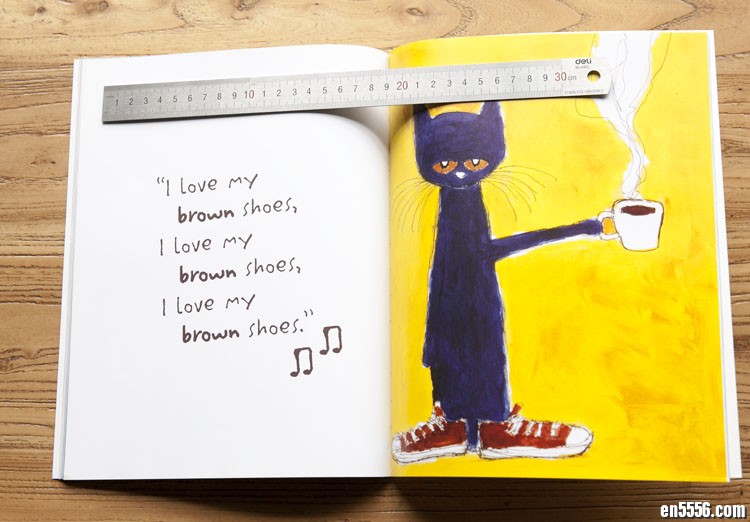 deli
1 2 3 4 5 6 7 8 9 10 1 2 3 4 5 6 7 8 9 20 1 2 3 4 5 6 7 8 9 30 cm
“I love my
brown shoes,
I love my
brown shoes,
I love my
brown shoes.”
en5556.com